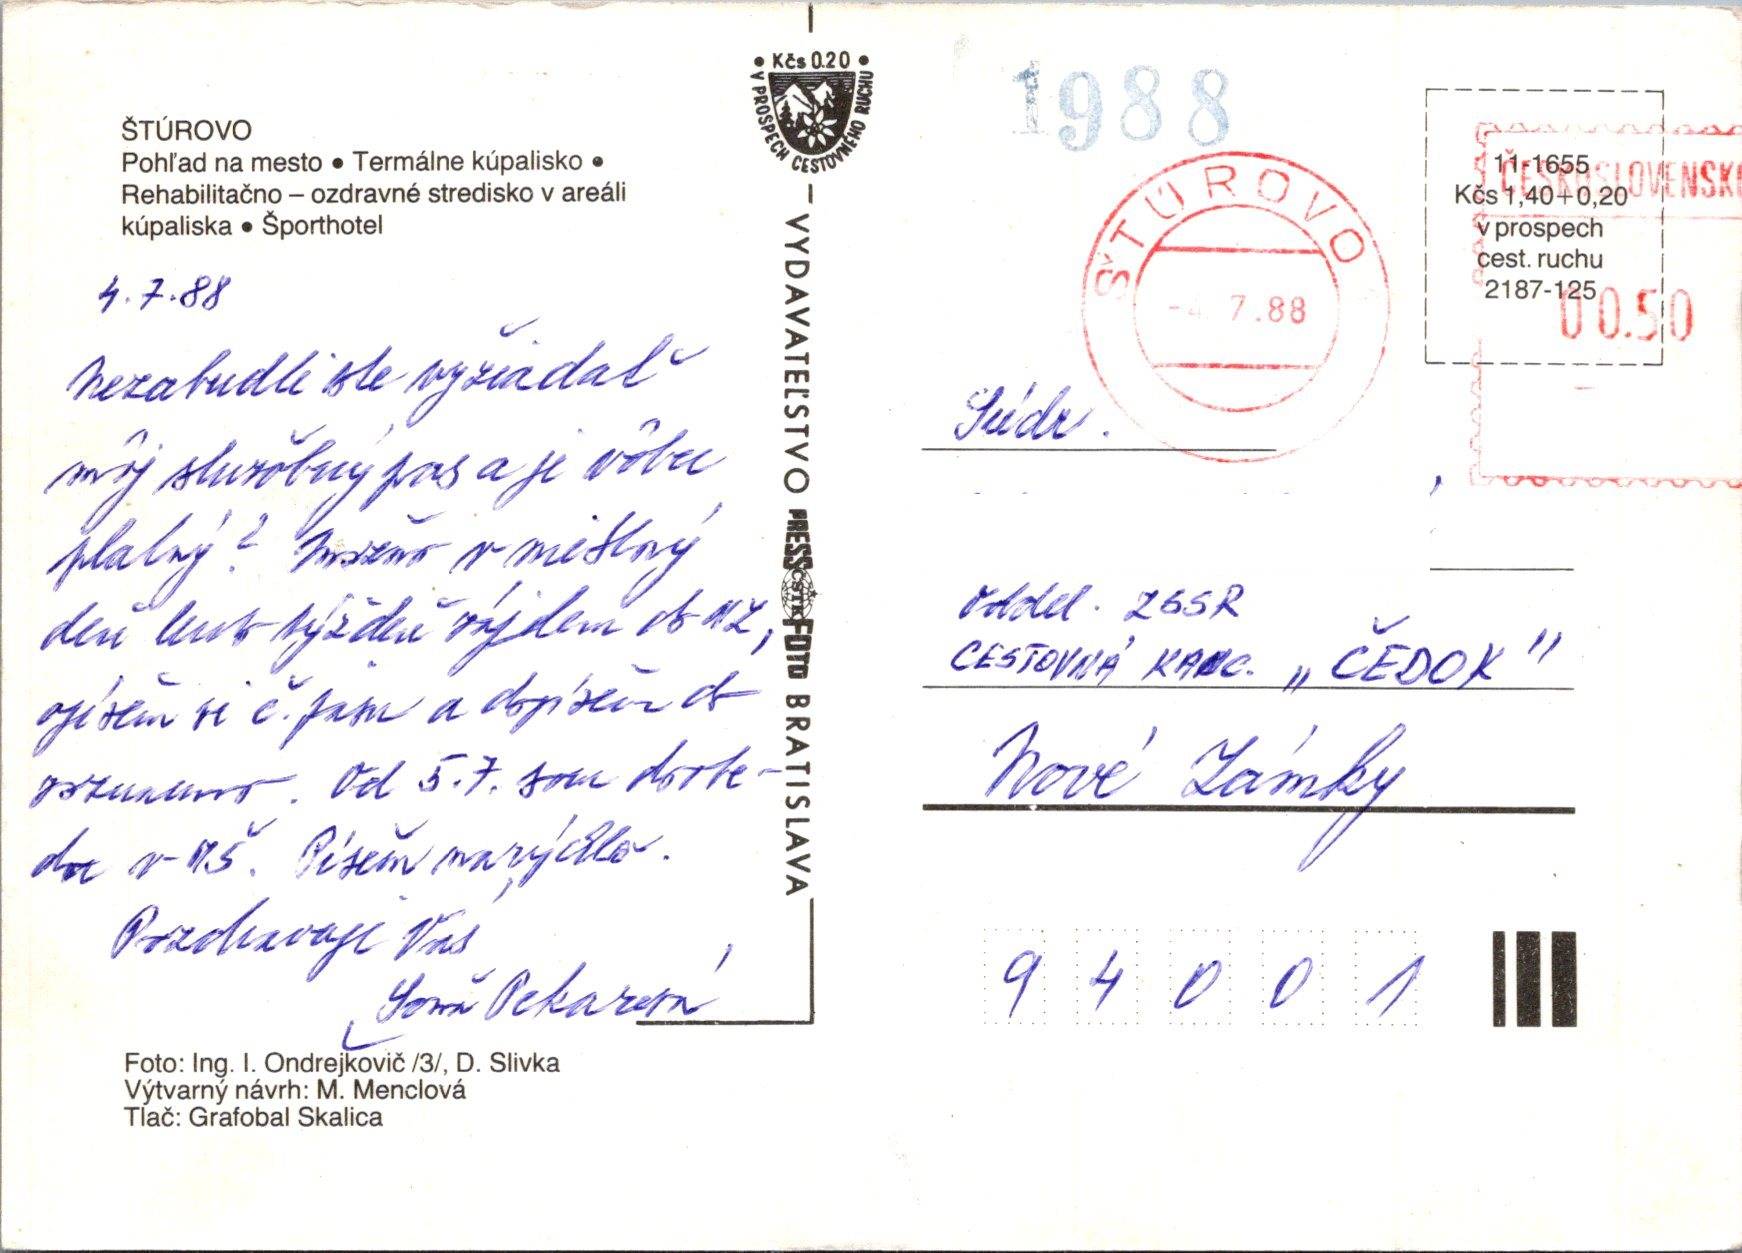 ŠTÚROVO
Pohľad na mesto • Termálne kúpalisko •
Rehabilitačno – ozdravné stredisko v areáli
kúpaliska • Športhotel
4.7.88
Nezabudli ste vyžiadať
môj služobný pas a je vôbec
platný? Možno v niektorý
deň tento týždeň zájdem do NZ,
opíšem si č. pasu a dopíšem do
oznamu. Od 5.7. som dote-
da v MŠ. Píšem
Pozdravuje Vás
Pekarová
Foto: Ing. I. Ondrejkovič /3/, D. Slivka
Výtvarný návrh: M. Menclová
Tlač: Grafobal Skalica
• Kčs 0.20 •
V PROSPECH CESTOVNÉHO RUCHU
VYDAVATEĽSTVO PRESSFOTO BRATISLAVA
ČSTK
1988
ŠTÚROVO
-4.7.88
ČESKOSLOVENSKO
00.50
11-1655
Kčs 1,40+0,20
v prospech
cest. ruchu
2187-125
Súdr.
Oddel. ZSSR
CESTOVNÁ KANC. „ČEDOK"
Nové Zámky
94001